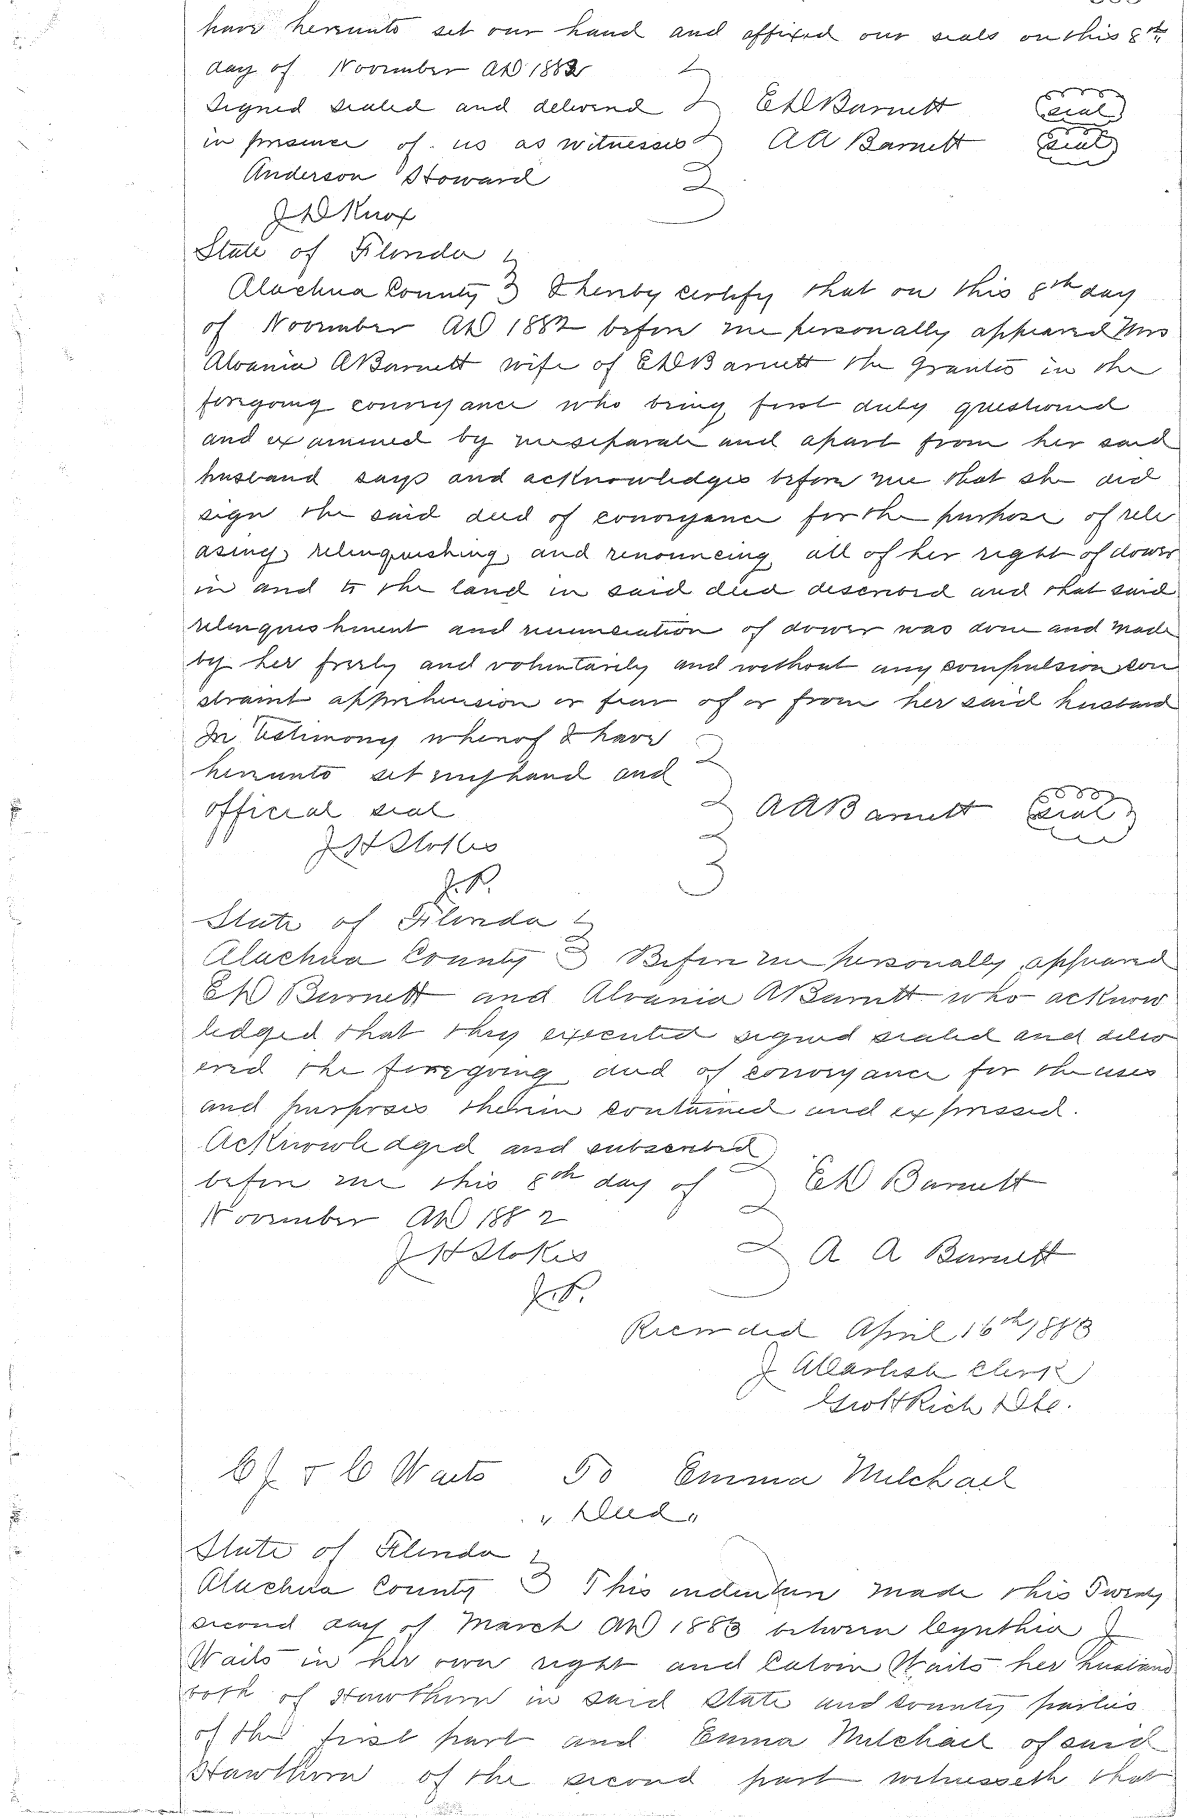 have hereunto set our hand and affixed our seals on this 8th
day of November AD 1882
Signed sealed and delivered E D Barnett seal
in presence of us as witnesses A A Barnett seal
Anderson Howard
J D Knox
State of Florida
Alachua County I hereby certify that on this 8th day
of November AD 1882 before me personally appeared Mrs
Alvania A Barnett wife of E D Barnett the grantes in the
foregoing conveyance who being first duly questioned
and examined by me separate and apart from her said
husband says and acknowledges before me that she did
sign the said deed of conveyance for the purpose of rele
asing relinquishing and renouncing all of her right of dower
in and to the land in said deed described and that said
relinquishment and renunciation of dower was done and made
by her freely and voluntarily and without any compulsion con
straint apprehension or fear of or from her said husband
In Testimony whereof I have
hereunto set my hand and
official seal A A Barnett seal
J H Stokes
J.P.
State of Florida
Alachua County Before me personally appeared
E D Barnett and Alvania A Barnett who acknow
ledged that they executed signed sealed and deliv
ered the foregoing deed of conveyance for the uses
and purposes therein contained and expressed.
Acknowledged and subscribed
before me this 8th day of E D Barnett
November AD 1882
J H Stokes A A Barnett
J.P.
Recorded April 16th 1883
J A Carlisle Clerk
Geo H Rich D.C.
C J & C Waits To Emma Milchael
" Deed "
State of Florida
Alachua County This indenture made this Twenty
second day of March AD 1883 between Cynthia J
Waits in her own right and Calvin Waits her husband
both of Hawthorn in said State and County parties
of the first part and Emma Milchael of said
Hawthorn of the second part witnesseth that